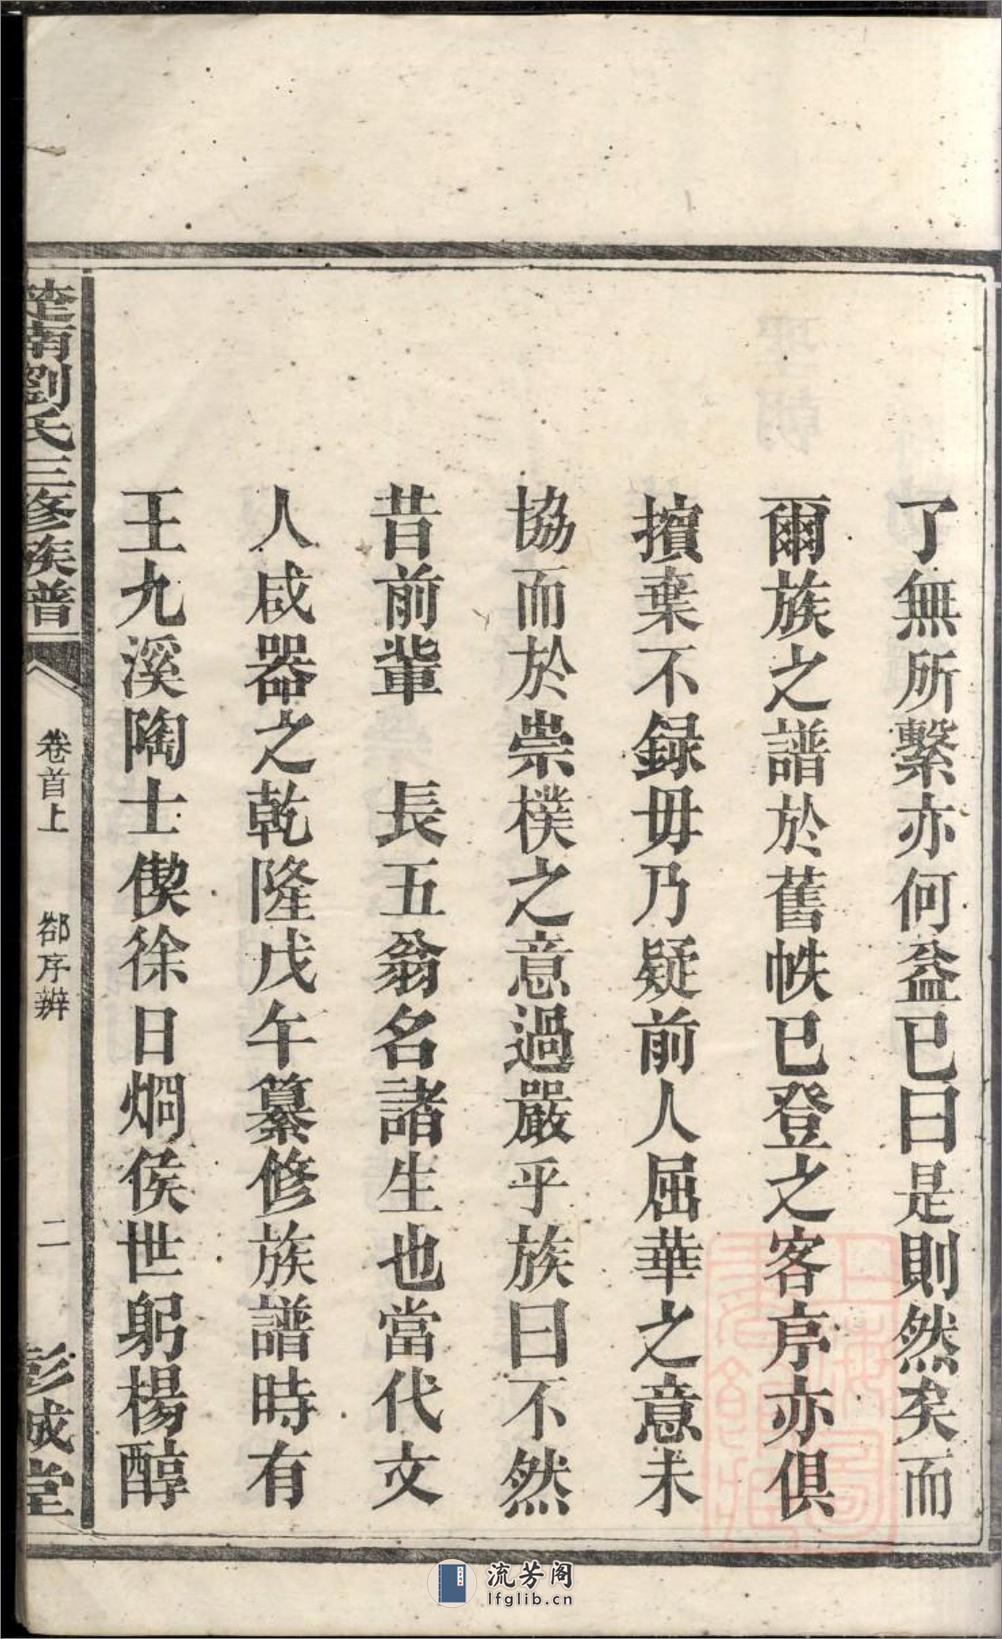 了無所繫亦何益已曰是則然矣而
爾族之譜於舊帙已登之客序亦俱
擯棄不録毋乃疑前人屈華之意未
協而於崇樸之意過嚴乎族曰不然
昔前輩 長五翁名諸生也當代文
人咸器之乾隆戊午纂修族譜時有
王九溪陶士僙徐日烱侯世躬楊醇
楚南劉氏三修族譜
卷首上
郤序辨
二
彭城堂
流芳阁
lfglib.cn